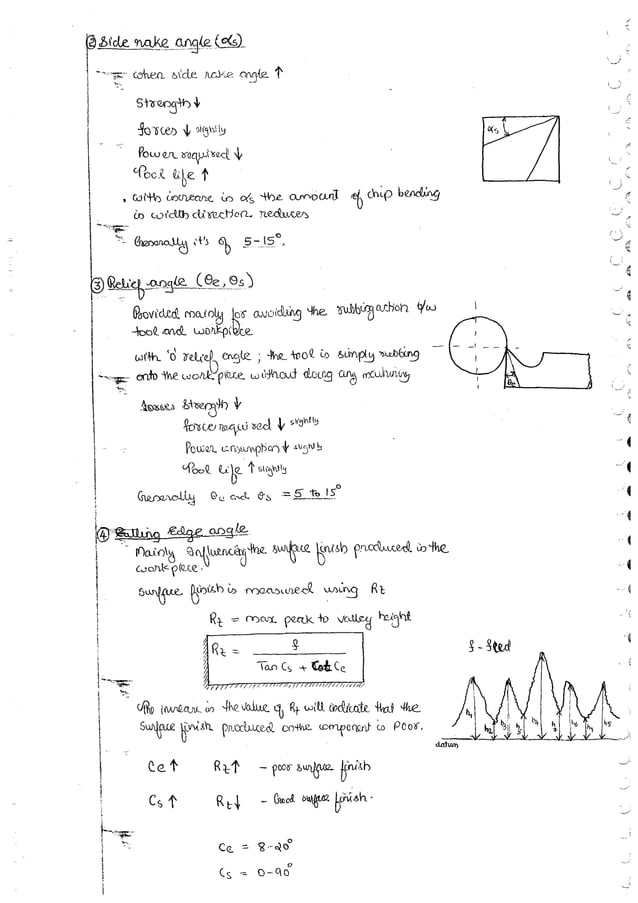 ② Side rake angle (αs)
when side rake angle ↑
Strength ↓
forces ↓ slightly
Power required ↓
Tool life ↑
αs
. with increase in αs the amount of chip bending
in width direction reduces
Generally it's of 5-15°.
③ Relief angle (θe, θs)
Provided mainly for avoiding the rubbing action b/w
tool and workpiece
with '0' relief angle ; the tool is simply rubbing
onto the workpiece without doing any machining
θe
Strength ↓
force required ↓ slightly
Power consumption ↓ slightly
Tool life ↑ slightly
Generally θe and θs = 5 to 15°
④ Cutting Edge angle
Mainly Influencing the surface finish produced in the
workpiece.
surface finish is measured using Rt
Rt = max peak to valley height
Rt = f / Tan Cs + Cot Ce
f - feed
The increase in the value of Rt will indicate that the
surface finish produced on the component is Poor.
h1 h2 h3 h5
datum
Ce ↑ Rt ↑ - poor surface finish
Cs ↑ Rt ↓ - Good surface finish.
Ce = 8-20°
Cs = 0-90°